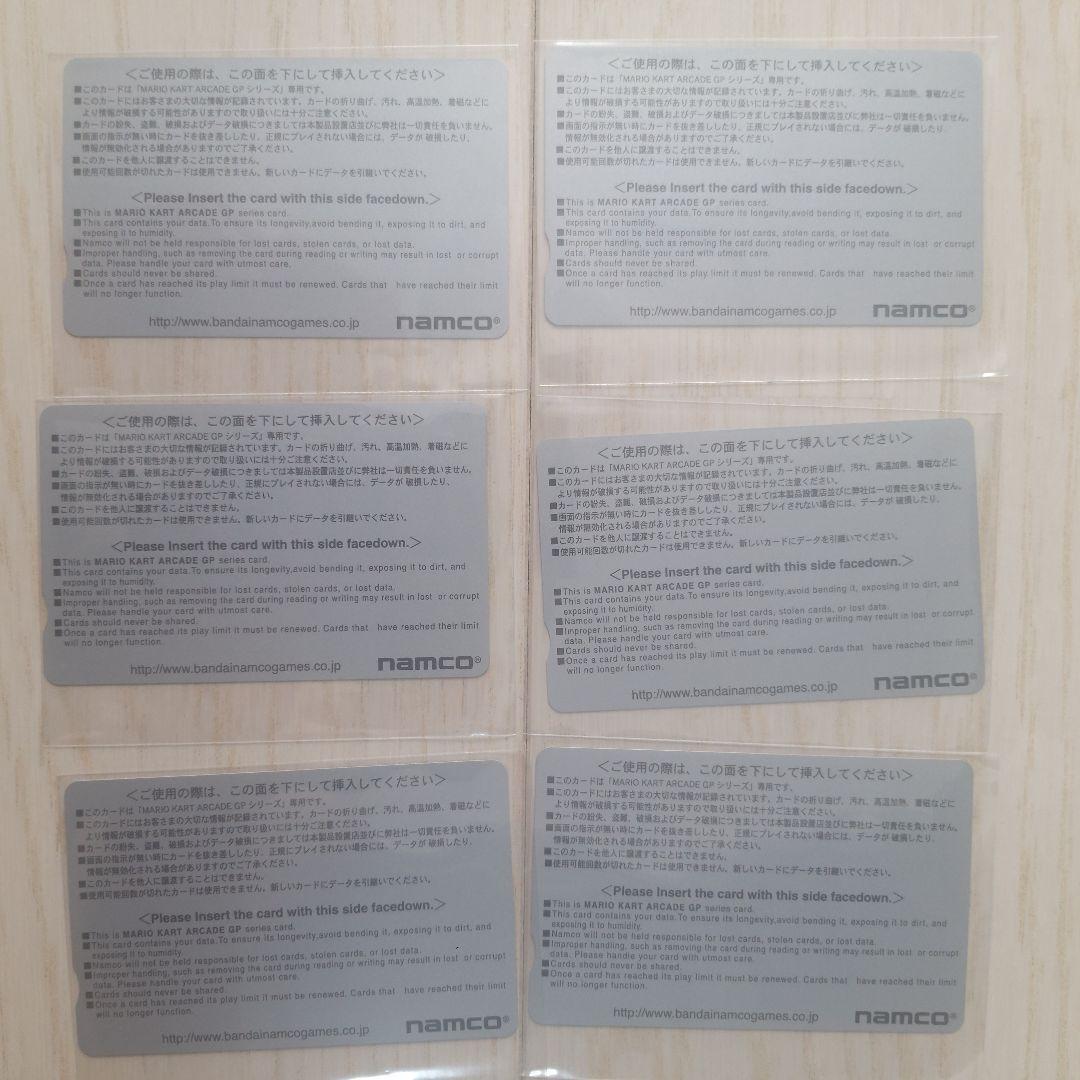 <ご使用の際は、この面を下にして挿入してください>
■このカードは「MARIO KART ARCADE GP シリーズ」専用です。
■このカードにはお客さまの大切な情報が記録されています。カードの折り曲げ、汚れ、高温加熱、着磁などに
より情報が破損する可能性がありますので取り扱いには十分ご注意ください。
■カードの紛失、盗難、破損およびデータ破損につきましては本製品設置店並びに弊社は一切責任を負いません。
■画面の指示が無い時にカードを抜き差ししたり、正規にプレイされない場合には、データが 破損したり、
情報が無効化される場合がありますのでご了承ください。
■このカードを他人に譲渡することはできません。
■使用可能回数が切れたカードは使用できません。新しいカードにデータを引継いでください。
<Please Insert the card with this side facedown.>
■This is MARIO KART ARCADE GP series card.
■This card contains your data.To ensure its longevity,avoid bending it, exposing it to dirt, and
exposing it to humidity.
■Namco will not be held responsible for lost cards, stolen cards, or lost data.
■Improper handling, such as removing the card during reading or writing may result in lost or corrupt
data. Please handle your card with utmost care.
■Cards should never be shared.
■Once a card has reached its play limit it must be renewed. Cards that have reached their limit
will no longer function.
http://www.bandainamcogames.co.jp namco®
<ご使用の際は、この面を下にして挿入してください>
■このカードは「MARIO KART ARCADE GP シリーズ」専用です。
■このカードにはお客さまの大切な情報が記録されています。カードの折り曲げ、汚れ、高温加熱、着磁などに
より情報が破損する可能性がありますので取り扱いには十分ご注意ください。
■カードの紛失、盗難、破損およびデータ破損につきましては本製品設置店並びに弊社は一切責任を負いません。
■画面の指示が無い時にカードを抜き差ししたり、正規にプレイされない場合には、データが 破損したり、
情報が無効化される場合がありますのでご了承ください。
■このカードを他人に譲渡することはできません。
■使用可能回数が切れたカードは使用できません。新しいカードにデータを引継いでください。
<Please Insert the card with this side facedown.>
■This is MARIO KART ARCADE GP series card.
■This card contains your data.To ensure its longevity,avoid bending it, exposing it to dirt, and
exposing it to humidity.
■Namco will not be held responsible for lost cards, stolen cards, or lost data.
■Improper handling, such as removing the card during reading or writing may result in lost or corrupt
data. Please handle your card with utmost care.
■Cards should never be shared.
■Once a card has reached its play limit it must be renewed. Cards that have reached their limit
will no longer function.
http://www.bandainamcogames.co.jp namco®
<ご使用の際は、この面を下にして挿入してください>
■このカードは「MARIO KART ARCADE GP シリーズ」専用です。
■このカードにはお客さまの大切な情報が記録されています。カードの折り曲げ、汚れ、高温加熱、着磁などに
より情報が破損する可能性がありますので取り扱いには十分ご注意ください。
■カードの紛失、盗難、破損およびデータ破損につきましては本製品設置店並びに弊社は一切責任を負いません。
■画面の指示が無い時にカードを抜き差ししたり、正規にプレイされない場合には、データが 破損したり、
情報が無効化される場合がありますのでご了承ください。
■このカードを他人に譲渡することはできません。
■使用可能回数が切れたカードは使用できません。新しいカードにデータを引継いでください。
<Please Insert the card with this side facedown.>
■This is MARIO KART ARCADE GP series card.
■This card contains your data.To ensure its longevity,avoid bending it, exposing it to dirt, and
exposing it to humidity.
■Namco will not be held responsible for lost cards, stolen cards, or lost data.
■Improper handling, such as removing the card during reading or writing may result in lost or corrupt
data. Please handle your card with utmost care.
■Cards should never be shared.
■Once a card has reached its play limit it must be renewed. Cards that have reached their limit
will no longer function.
http://www.bandainamcogames.co.jp namco®
<ご使用の際は、この面を下にして挿入してください>
■このカードは「MARIO KART ARCADE GP シリーズ」専用です。
■このカードにはお客さまの大切な情報が記録されています。カードの折り曲げ、汚れ、高温加熱、着磁などに
より情報が破損する可能性がありますので取り扱いには十分ご注意ください。
■カードの紛失、盗難、破損およびデータ破損につきましては本製品設置店並びに弊社は一切責任を負いません。
■画面の指示が無い時にカードを抜き差ししたり、正規にプレイされない場合には、データが 破損したり、
情報が無効化される場合がありますのでご了承ください。
■このカードを他人に譲渡することはできません。
■使用可能回数が切れたカードは使用できません。新しいカードにデータを引継いでください。
<Please Insert the card with this side facedown.>
■This is MARIO KART ARCADE GP series card.
■This card contains your data.To ensure its longevity,avoid bending it, exposing it to dirt, and
exposing it to humidity.
■Namco will not be held responsible for lost cards, stolen cards, or lost data.
■Improper handling, such as removing the card during reading or writing may result in lost or corrupt
data. Please handle your card with utmost care.
■Cards should never be shared.
■Once a card has reached its play limit it must be renewed. Cards that have reached their limit
will no longer function.
http://www.bandainamcogames.co.jp namco®
<ご使用の際は、この面を下にして挿入してください>
■このカードは「MARIO KART ARCADE GP シリーズ」専用です。
■このカードにはお客さまの大切な情報が記録されています。カードの折り曲げ、汚れ、高温加熱、着磁などに
より情報が破損する可能性がありますので取り扱いには十分ご注意ください。
■カードの紛失、盗難、破損およびデータ破損につきましては本製品設置店並びに弊社は一切責任を負いません。
■画面の指示が無い時にカードを抜き差ししたり、正規にプレイされない場合には、データが 破損したり、
情報が無効化される場合がありますのでご了承ください。
■このカードを他人に譲渡することはできません。
■使用可能回数が切れたカードは使用できません。新しいカードにデータを引継いでください。
<Please Insert the card with this side facedown.>
■This is MARIO KART ARCADE GP series card.
■This card contains your data.To ensure its longevity,avoid bending it, exposing it to dirt, and
exposing it to humidity.
■Namco will not be held responsible for lost cards, stolen cards, or lost data.
■Improper handling, such as removing the card during reading or writing may result in lost or corrupt
data. Please handle your card with utmost care.
■Cards should never be shared.
■Once a card has reached its play limit it must be renewed. Cards that have reached their limit
will no longer function.
http://www.bandainamcogames.co.jp namco®
<ご使用の際は、この面を下にして挿入してください>
■このカードは「MARIO KART ARCADE GP シリーズ」専用です。
■このカードにはお客さまの大切な情報が記録されています。カードの折り曲げ、汚れ、高温加熱、着磁などに
より情報が破損する可能性がありますので取り扱いには十分ご注意ください。
■カードの紛失、盗難、破損およびデータ破損につきましては本製品設置店並びに弊社は一切責任を負いません。
■画面の指示が無い時にカードを抜き差ししたり、正規にプレイされない場合には、データが 破損したり、
情報が無効化される場合がありますのでご了承ください。
■このカードを他人に譲渡することはできません。
■使用可能回数が切れたカードは使用できません。新しいカードにデータを引継いでください。
<Please Insert the card with this side facedown.>
■This is MARIO KART ARCADE GP series card.
■This card contains your data.To ensure its longevity,avoid bending it, exposing it to dirt, and
exposing it to humidity.
■Namco will not be held responsible for lost cards, stolen cards, or lost data.
■Improper handling, such as removing the card during reading or writing may result in lost or corrupt
data. Please handle your card with utmost care.
■Cards should never be shared.
■Once a card has reached its play limit it must be renewed. Cards that have reached their limit
will no longer function.
http://www.bandainamcogames.co.jp namco®